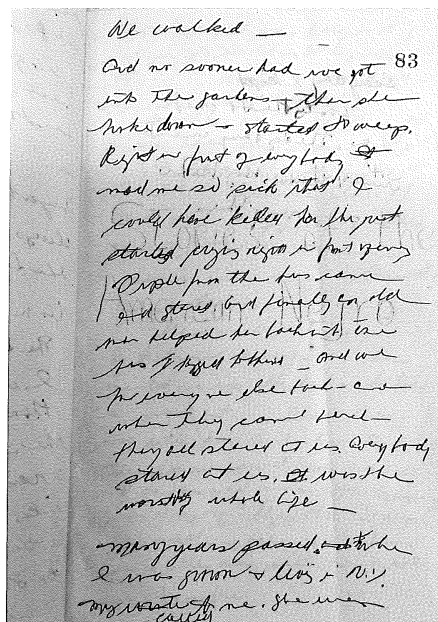 We walked —
83
And no sooner had we got
into the gardens than she
broke down & started to weep.
Right in front of everybody It
made me so sick that I
could have killed her. She just
started crying right in front of every
People from the bus came
and stared and finally an old
man helped her back into the
bus I stayed behind — and we
for everyone else back — and
when they came back
they all stared at us. Everybody
stared at us. It was the
worst my whole life —
Many years passed. when
I was grown & living in N.Y.
my wrote to me. She was
called